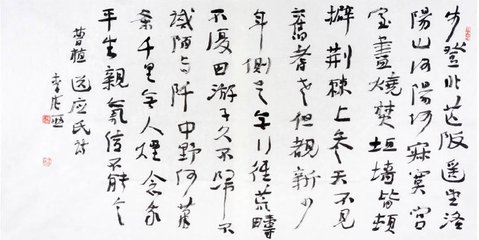 步登北芒阪遥望洛
陽山洛陽何寂寞宮
室盡燒焚垣墻皆頓
擗荆棘上参天不見
舊耆老但覩新少
年側足無行徑荒疇
不復田游子久不歸不
識陌与阡中野何蕭
条千里無人煙念我
平生親氣結不能言
曹植送應氏詩